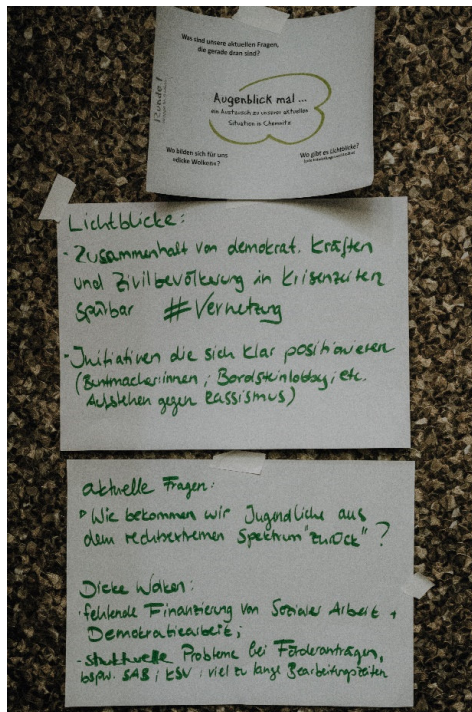 Was sind unsere aktuellen Fragen,
die gerade dran sind?
Runde 1
Augenblick mal ...
ein Austausch zu unserer aktuellen
Situation in Chemnitz
Wo bilden sich für uns
«dicke Wolken»?
Wo gibt es Lichtblicke?
Lichtblicke:
- Zusammenhalt von demokrat. Kräften
und Zivilbevölkerung in Krisenzeiten
spürbar #Vernetzung
- Initiativen die sich klar positionieren
(Buntmacher:innen ; Bordsteinlobby ; etc.
Aufstehen gegen Rassismus)
aktuelle Fragen:
Wie bekommen wir Jugendliche aus
dem rechtsextremen Spektrum "zurück" ?
Dicke Wolken:
· fehlende Finanzierung von Sozialer Arbeit +
Demokratiearbeit;
- strukturelle Probleme bei Förderanträgen,
bspw. SAB ; KSV ; viel zu lange Bearbeitungszeiten